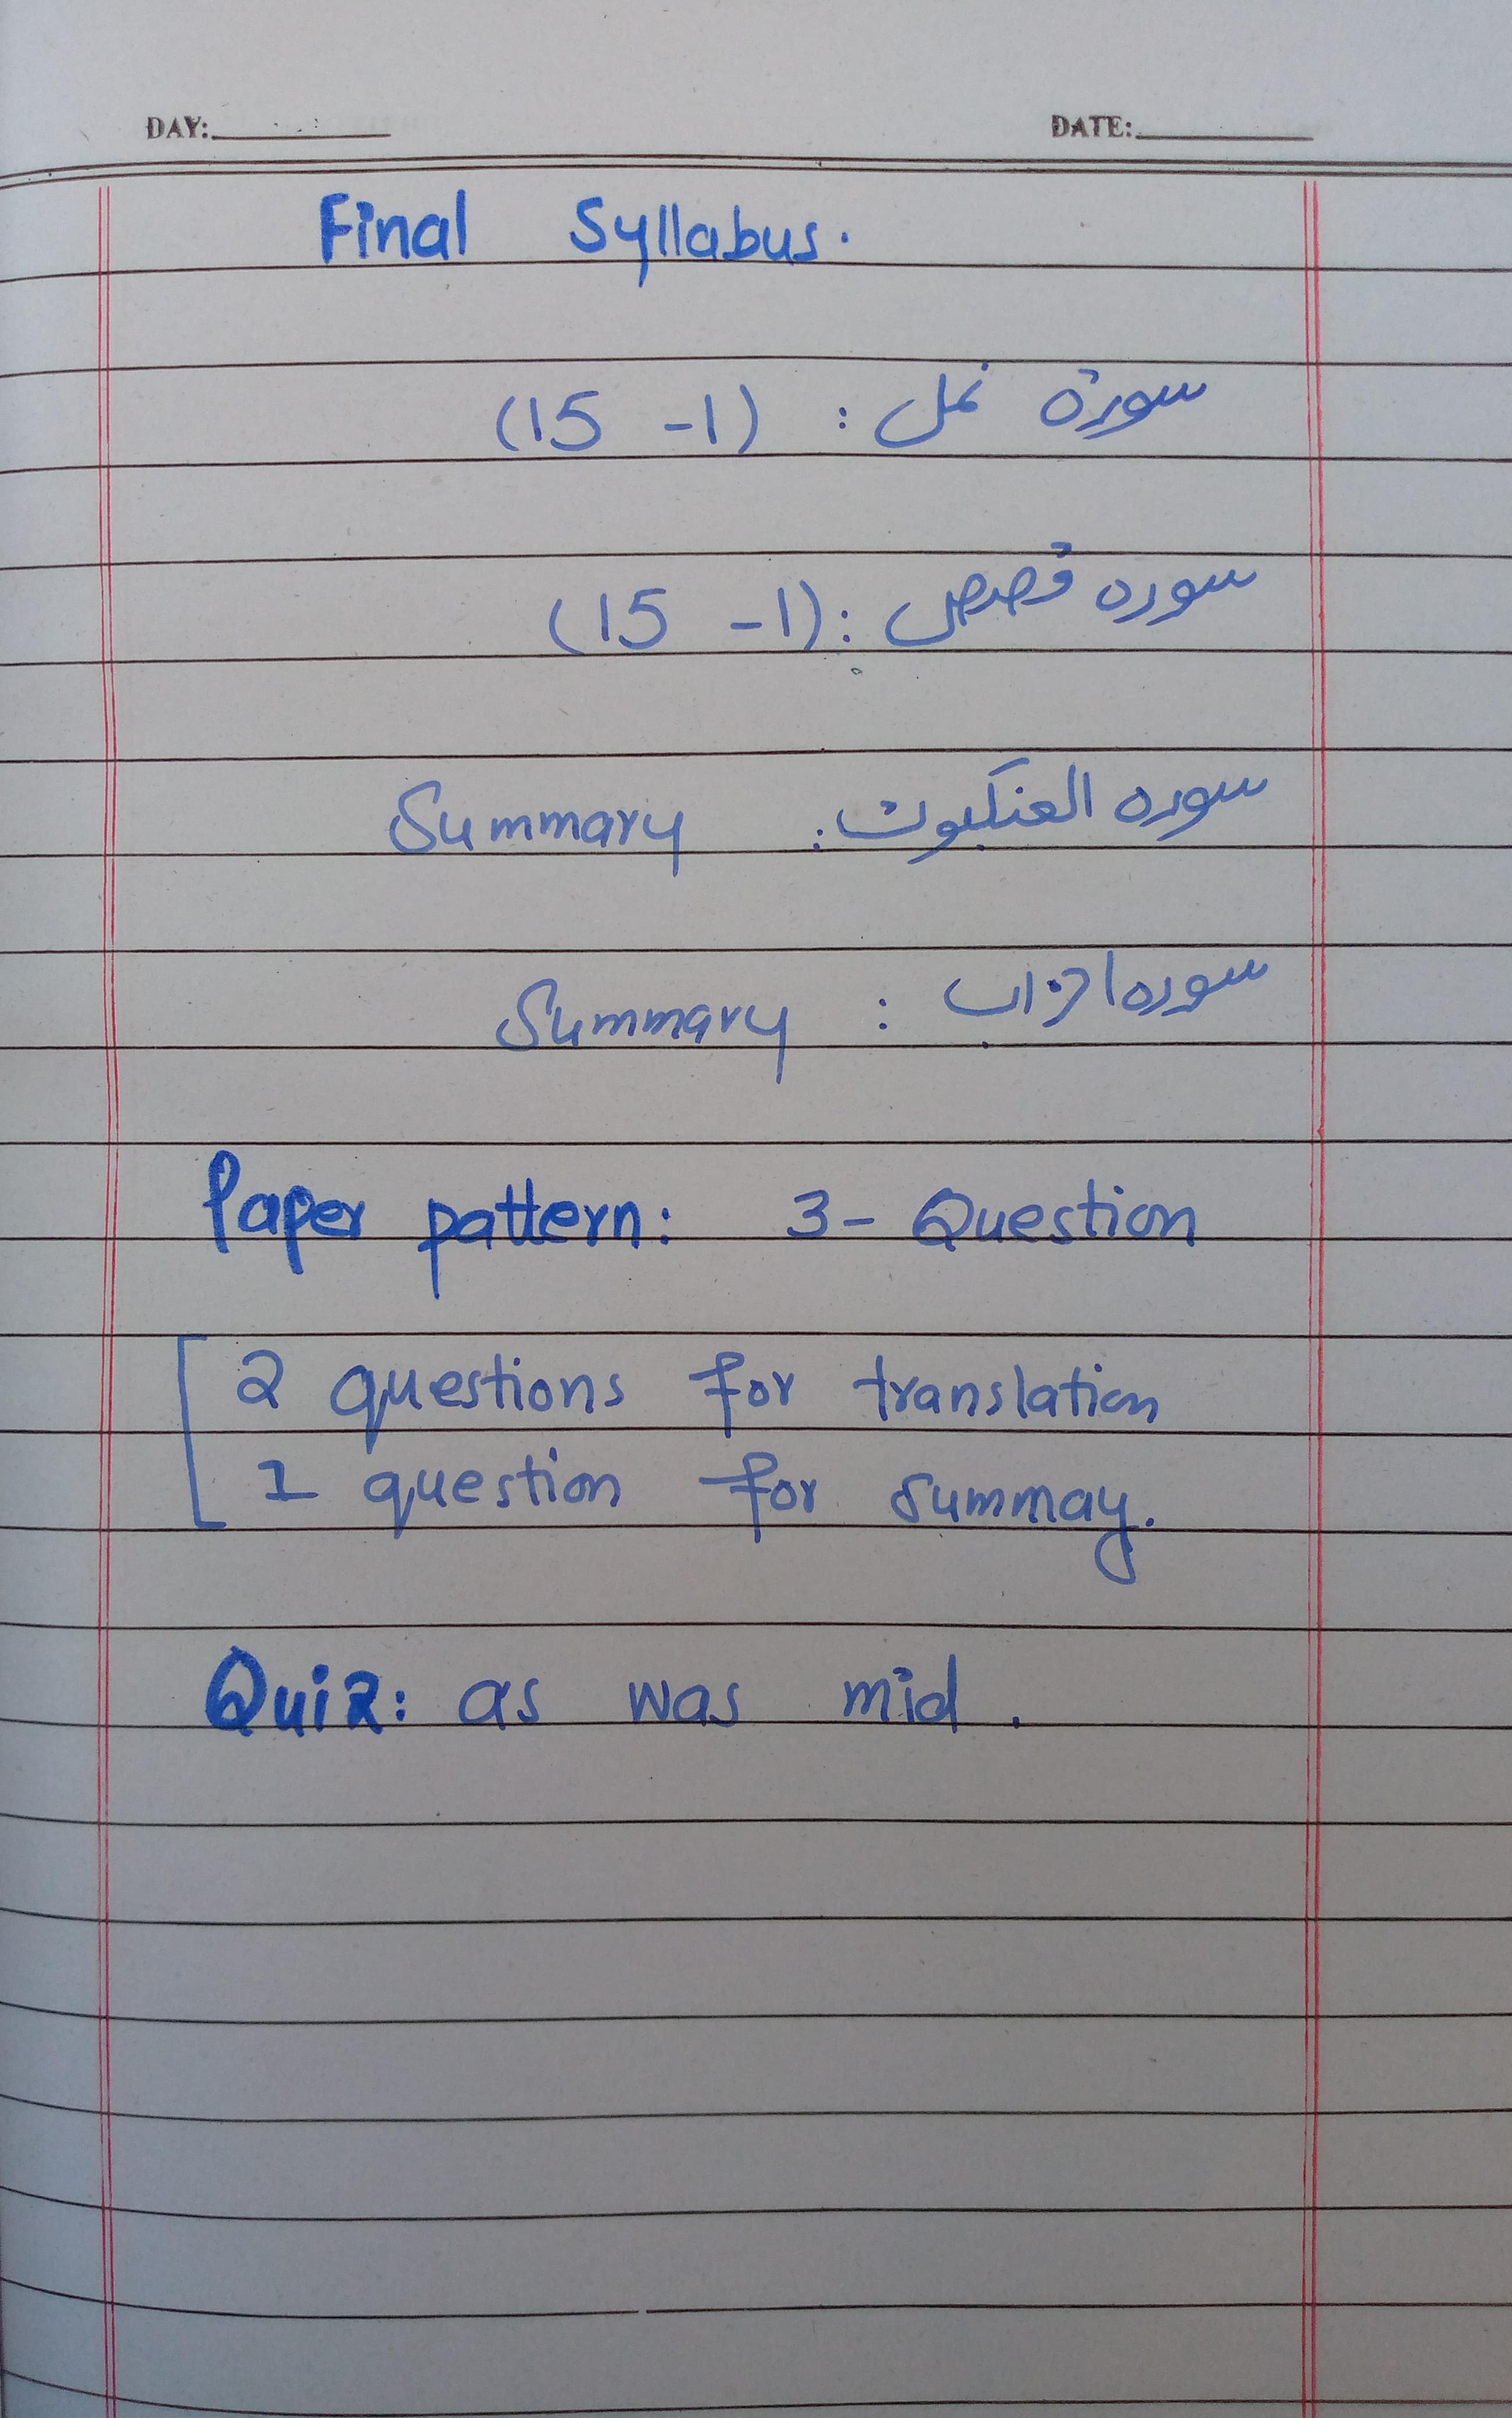 DAY: DATE:
Final Syllabus.
سورة نمل : (1- 15)
سوره قصص : (1- 15)
سوره العنكبوت : Summary
سوره احزاب : Summary
Paper pattern: 3- Question
2 questions for translation
1 question for summay.
Quiz: as was mid.